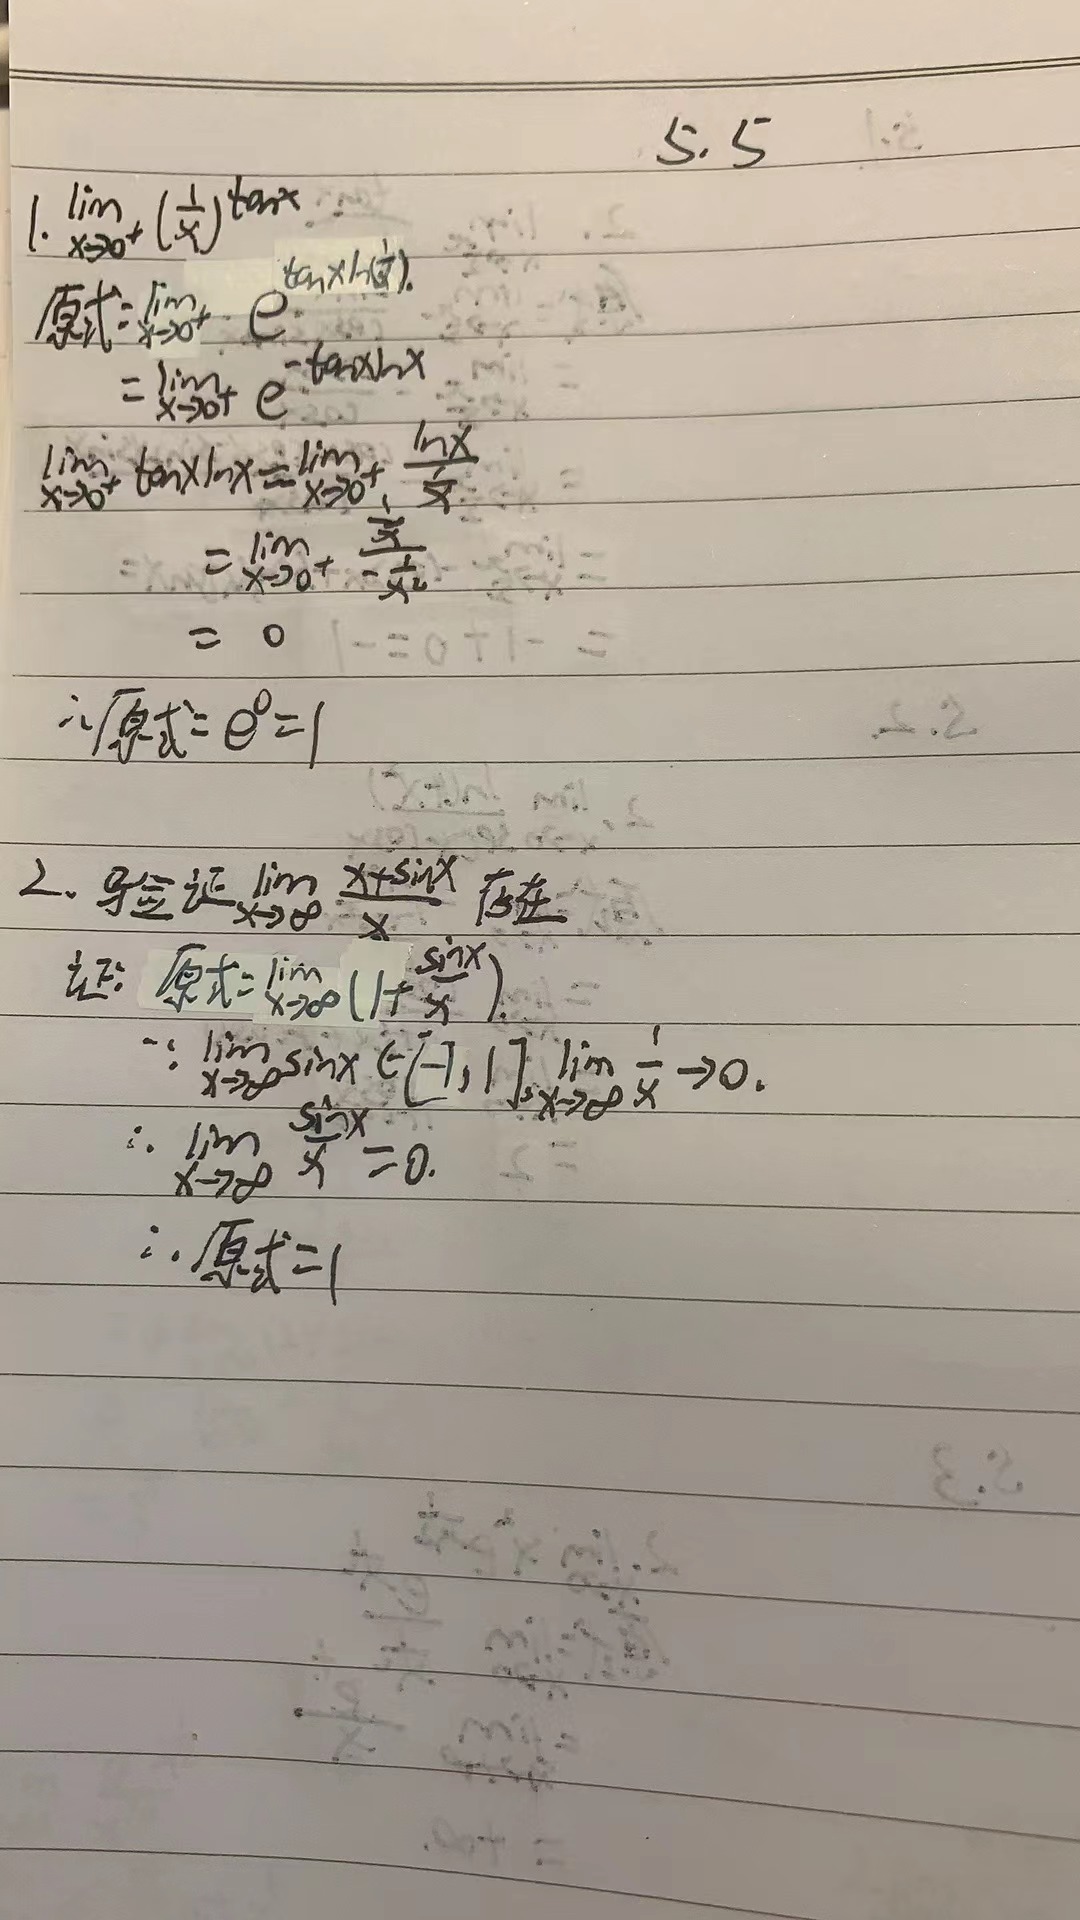 5.5
1. lim x→0⁺ (1/x)^tanx
原式=lim x→0⁺ e^tanxln(1/x).
=lim x→0⁺ e^-tanxlnx
lim x→0⁺ tanxlnx=lim x→0⁺ lnx/(1/x)
=lim x→0⁺ (1/x)/(-1/x²)
= 0
∴原式=e⁰=1
2. 验证 lim x→∞ (x+sinx)/x 存在
证: 原式=lim x→∞ (1+sinx/x).
∵ lim x→∞ sinx∈[-1,1], lim x→∞ 1/x→0.
∴ lim x→∞ sinx/x=0.
∴原式=1